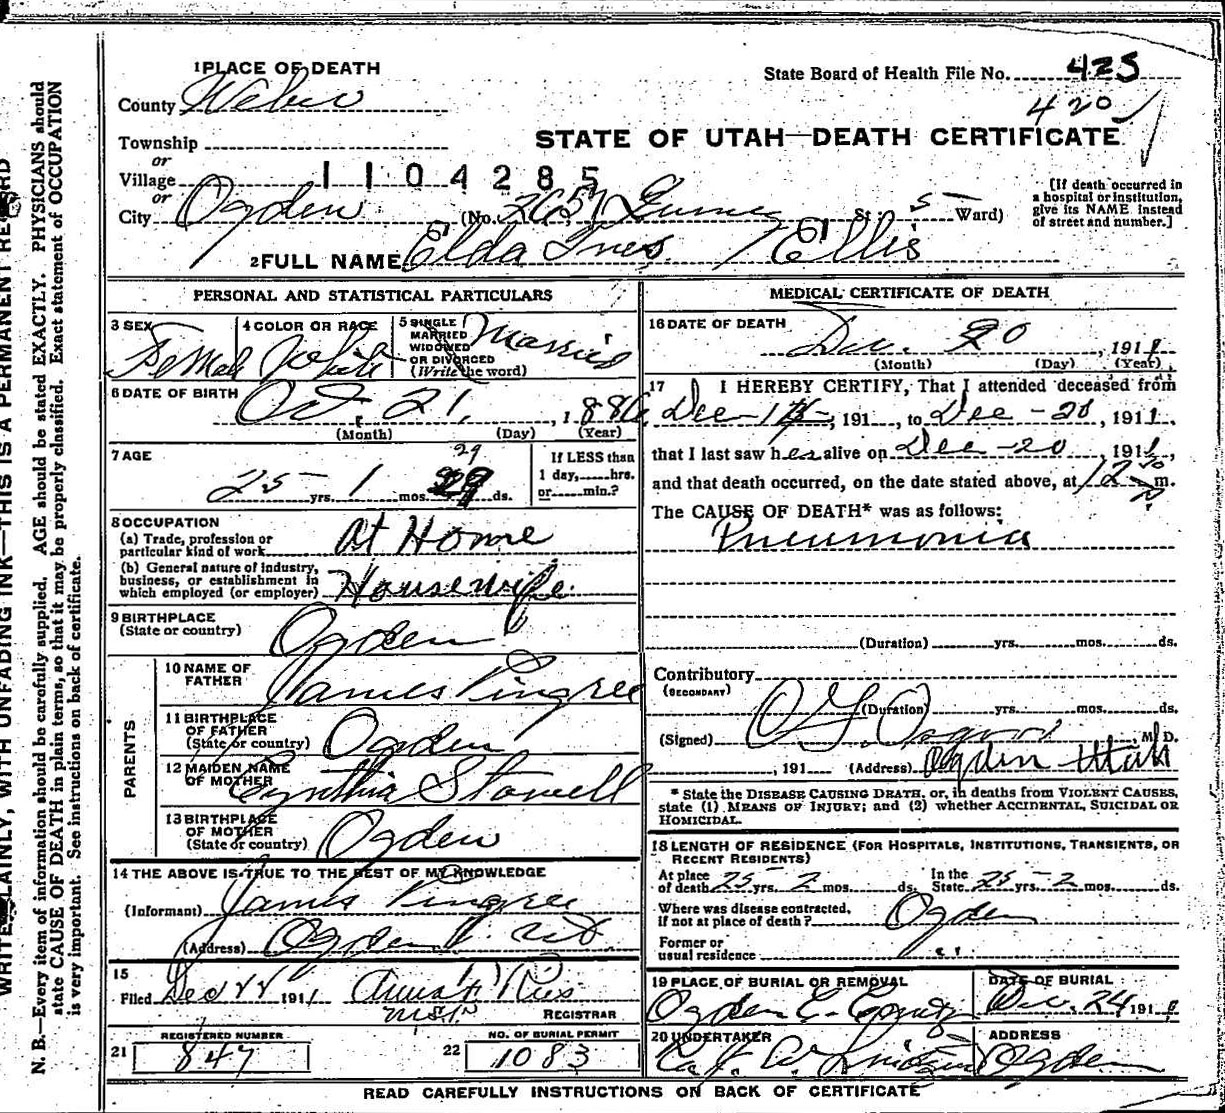 WRITE PLAINLY, WITH UNFADING INK—THIS IS A PERMANENT RECORD
N. B.—Every item of information should be carefully supplied. AGE should be stated EXACTLY. PHYSICIANS should
state CAUSE OF DEATH in plain terms, so that it may be properly classified. Exact statement of OCCUPATION
is very important. See instructions on back of certificate.
1 PLACE OF DEATH
State Board of Health File No. 425
County Weber
420
STATE OF UTAH—DEATH CERTIFICATE
Township
or
Village 1104285
or
City Ogden (No. 2057 St; 5 Ward)
[If death occurred in
a hospital or institution,
give its NAME instead
of street and number.]
2 FULL NAME Elda Ines Ellis
61 61
PERSONAL AND STATISTICAL PARTICULARS
3 SEX Female
4 COLOR OR RACE White
5 SINGLE
MARRIED
WIDOWED
OR DIVORCED
(Write the word)
Married
6 DATE OF BIRTH Oct 21, 1886
(Month) (Day) (Year)
7 AGE 25 yrs. 1 mos. 29 ds.
29
If LESS than
1 day,......hrs.
or......min.?
8 OCCUPATION
(a) Trade, profession or
particular kind of work At Home
(b) General nature of industry,
business, or establishment in
which employed (or employer) Housewife
9 BIRTHPLACE
(State or country) Ogden
PARENTS
10 NAME OF
FATHER James Pingree
11 BIRTHPLACE
OF FATHER
(State or country) Ogden
12 MAIDEN NAME
OF MOTHER Cynthia Stowell
13 BIRTHPLACE
OF MOTHER
(State or country) Ogden
14 THE ABOVE IS TRUE TO THE BEST OF MY KNOWLEDGE
(Informant) James Pingree
(Address) Ogden Ut
15
Filed Dec 22 1911
REGISTRAR
REGISTERED NUMBER
21 847
NO. OF BURIAL PERMIT
22 1083
MEDICAL CERTIFICATE OF DEATH
16 DATE OF DEATH
Dec. 20, 1911
(Month) (Day) (Year)
17 I HEREBY CERTIFY, That I attended deceased from
Dec-1, 191, to Dec-20, 1911,
that I last saw her alive on Dec-20, 1911,
and that death occurred, on the date stated above, at 12 m.
The CAUSE OF DEATH* was as follows:
Pneumonia
(Duration) yrs. mos. ds.
Contributory
(SECONDARY)
(Duration) yrs. mos. ds.
(Signed) M. D.
, 191 (Address) Ogden Utah
* State the DISEASE CAUSING DEATH, or, in deaths from VIOLENT CAUSES,
state (1) MEANS OF INJURY; and (2) whether ACCIDENTAL, SUICIDAL OR
HOMICIDAL.
18 LENGTH OF RESIDENCE (FOR HOSPITALS, INSTITUTIONS, TRANSIENTS, OR
RECENT RESIDENTS)
At place
of death 25 yrs. 2 mos. ds. In the
State 25 yrs. 2 mos. ds.
Where was disease contracted,
if not at place of death? Ogden
Former or
usual residence " "
19 PLACE OF BURIAL OR REMOVAL
Ogden C.
DATE OF BURIAL
Dec. 24 1911
20 UNDERTAKER
ADDRESS
Ogden
READ CAREFULLY INSTRUCTIONS ON BACK OF CERTIFICATE